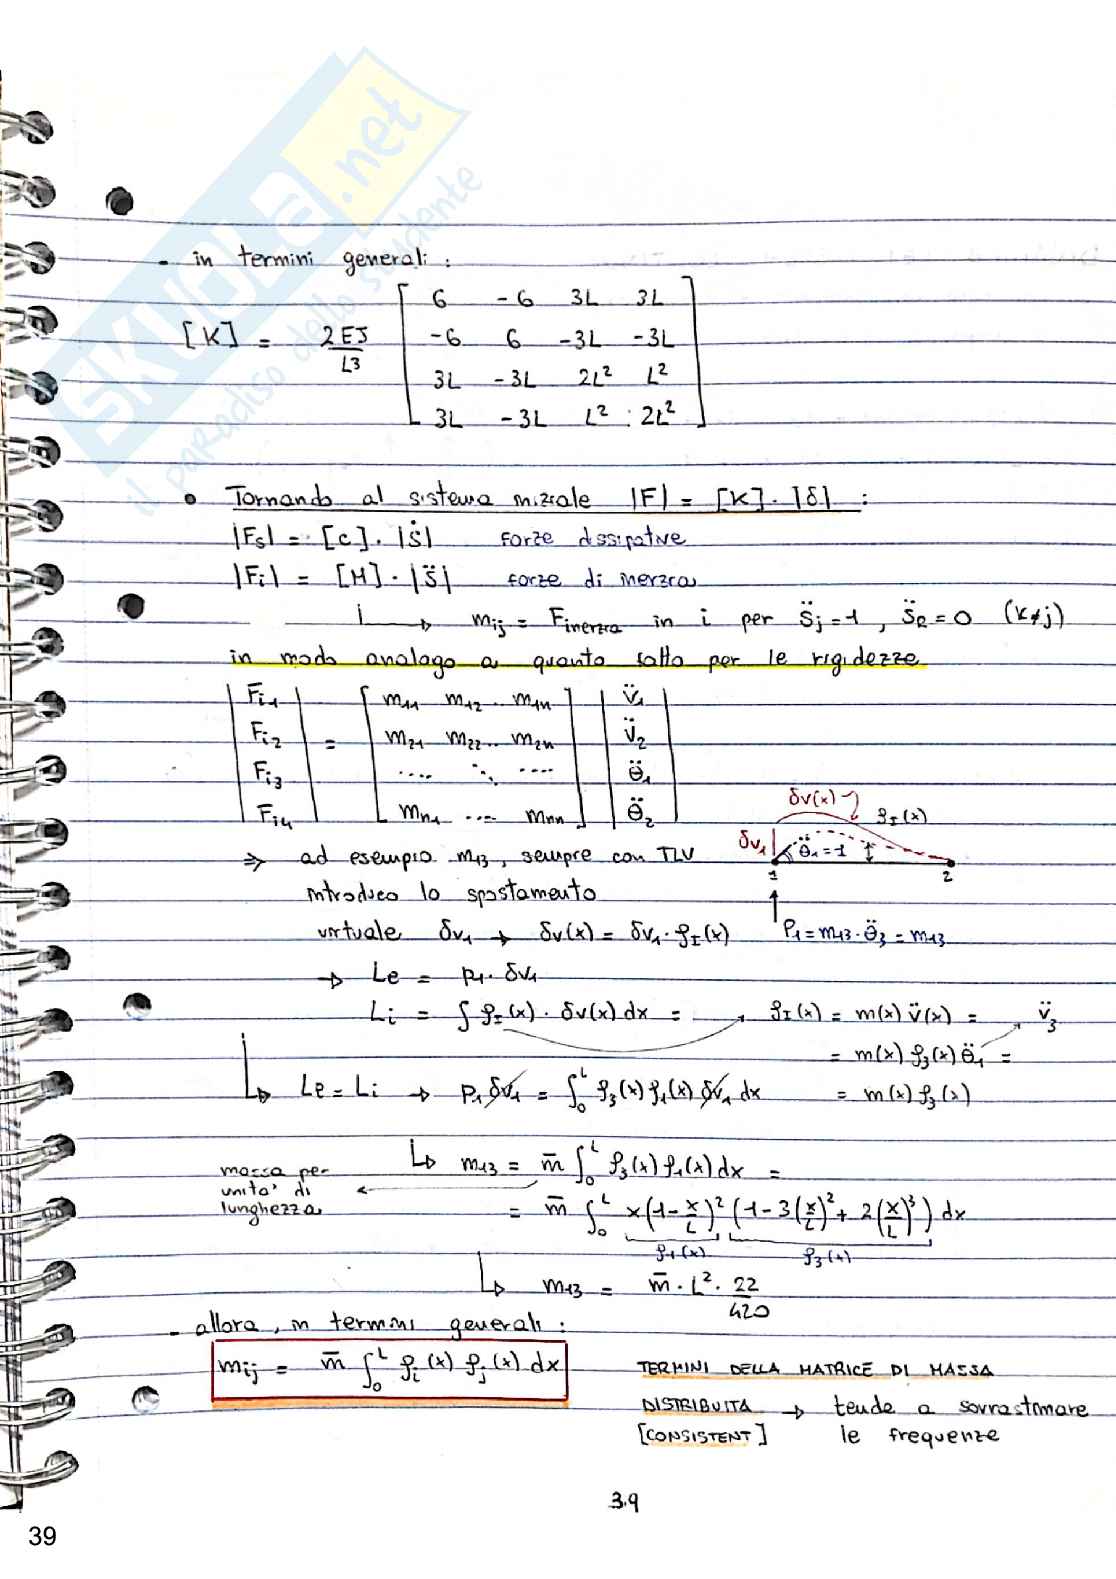 SKUOLA.net
il paradiso dello studente
- in termini generali :
[K] = 2EJ/L3 [ 6 -6 3L 3L
-6 6 -3L -3L
3L -3L 2L² L²
3L -3L L² 2L² ]
• Tornando al sistema iniziale |F| = [K] · |δ| :
|Fs| = [c] · |ṡ| forze dissipative
|Fi| = [M] · |s̈| forze di inerzia
↳ mij = Finerzia in i per s̈j = 1 , s̈k = 0 (k≠j)
in modo analogo a quanto fatto per le rigidezze
| Fi1 | = [ m11 m12 .. m1n ] | v̈1 |
| Fi2 | [ m21 m22 .. m2n ] | v̈2 |
| Fi3 | [ .... ⋱ .... ] | θ̈1 |
| Fi4 | [ mn1 .... mnn ] | θ̈2 |
δv(x) fI(x)
δv1 θ̈1 = 1
1 2
⇒ ad esempio m13 , sempre con TLV
introduco lo spostamento
virtuale δv1 → δv(x) = δv1 · φI(x) P1 = m13 · θ̈3 = m13
→ Le = p1 · δv1
Li = ∫ fI(x) · δv(x) dx = → fI(x) = m(x) v̈(x) = v̈3
= m(x) φ3(x) θ̈1 =
↳ Le = Li → p1 δv1 = ∫0^L φ3(x) φ1(x) δv1 dx = m(x) φ3(x)
↳ m13 = m̄ ∫0^L φ3(x) φ1(x) dx =
massa per
unita' di
lunghezza
= m̄ ∫0^L x(1 - x/L)² (1 - 3(x/L)² + 2(x/L)³) dx
φ1(x) φ3(x)
↳ m13 = m̄ · L² · 22/420
- allora , in termini generali :
mij = m̄ ∫0^L φi(x) φj(x) dx
TERMINI DELLA MATRICE DI MASSA
DISTRIBUITA → tende a sovrastimare
[CONSISTENT] le frequenze
3.9
39